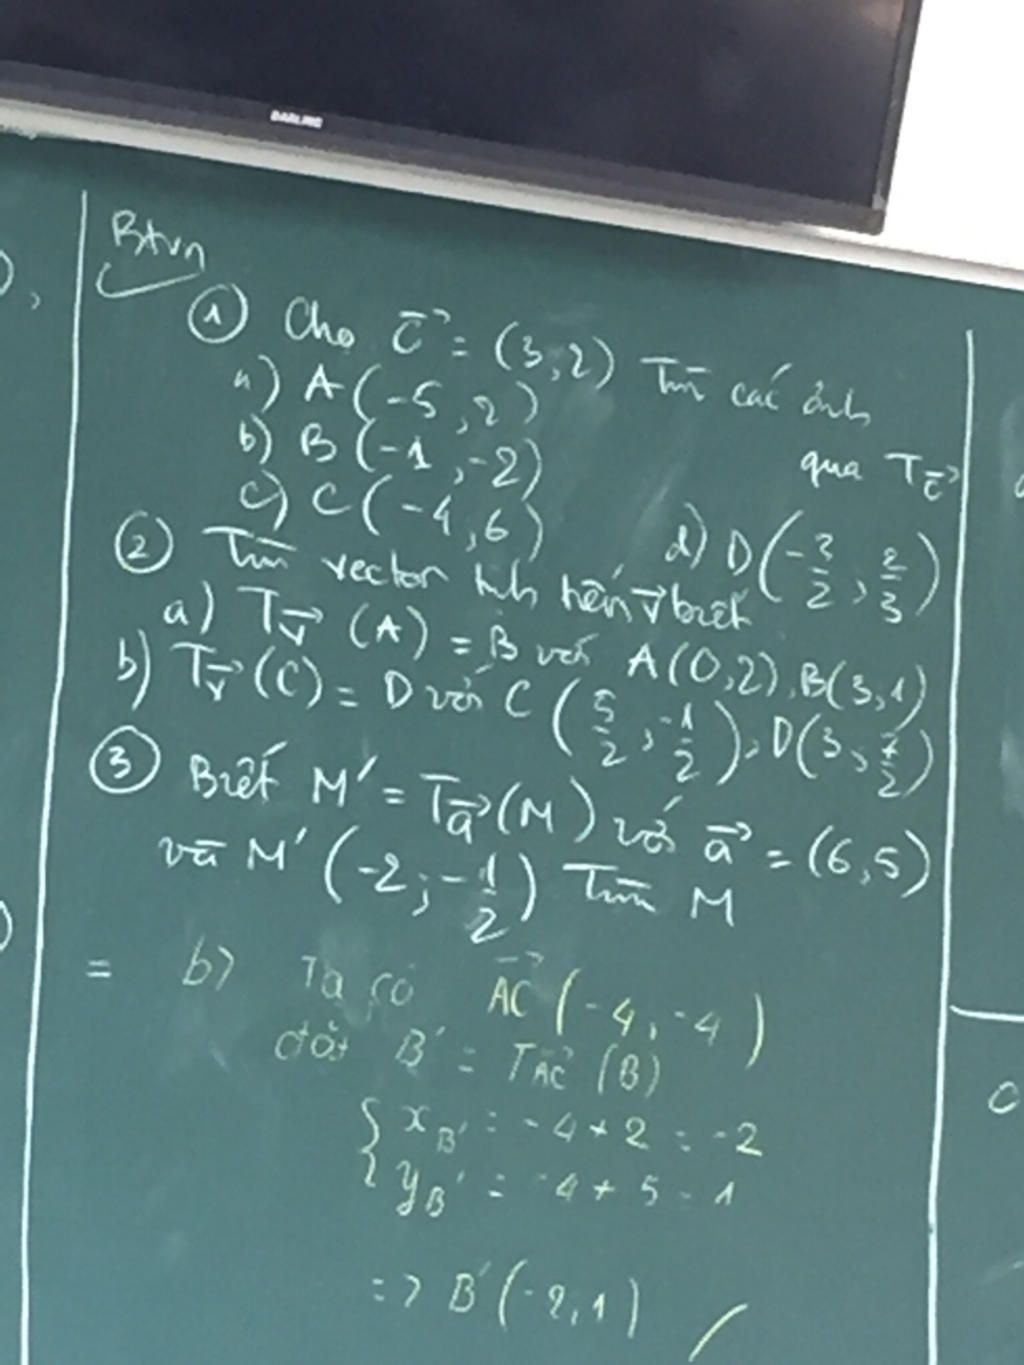 DARLING
BTVN
① Cho c⃗ = (3,2) Tìm các ảnh
qua T_c⃗
a) A(-5,2)
b) B(-1,-2)
c) C(-4,6)
d) D(-3/2, 2/3)
② Tìm vector tịnh tiến v⃗ biết
a) T_v⃗ (A) = B với A(0,2), B(3,1)
b) T_v⃗ (C) = D với C(5/2, -1/2), D(3, 7/2)
③ Biết M' = T_a⃗ (M) với a⃗ = (6,5)
và M'(-2; -1/2) Tìm M
= b> Ta có AC⃗ (-4, -4)
đặt B' = T_AC⃗ (B)
{ x_B' = -4 + 2 = -2
y_B' = -4 + 5 = 1
=> B'(-2,1)